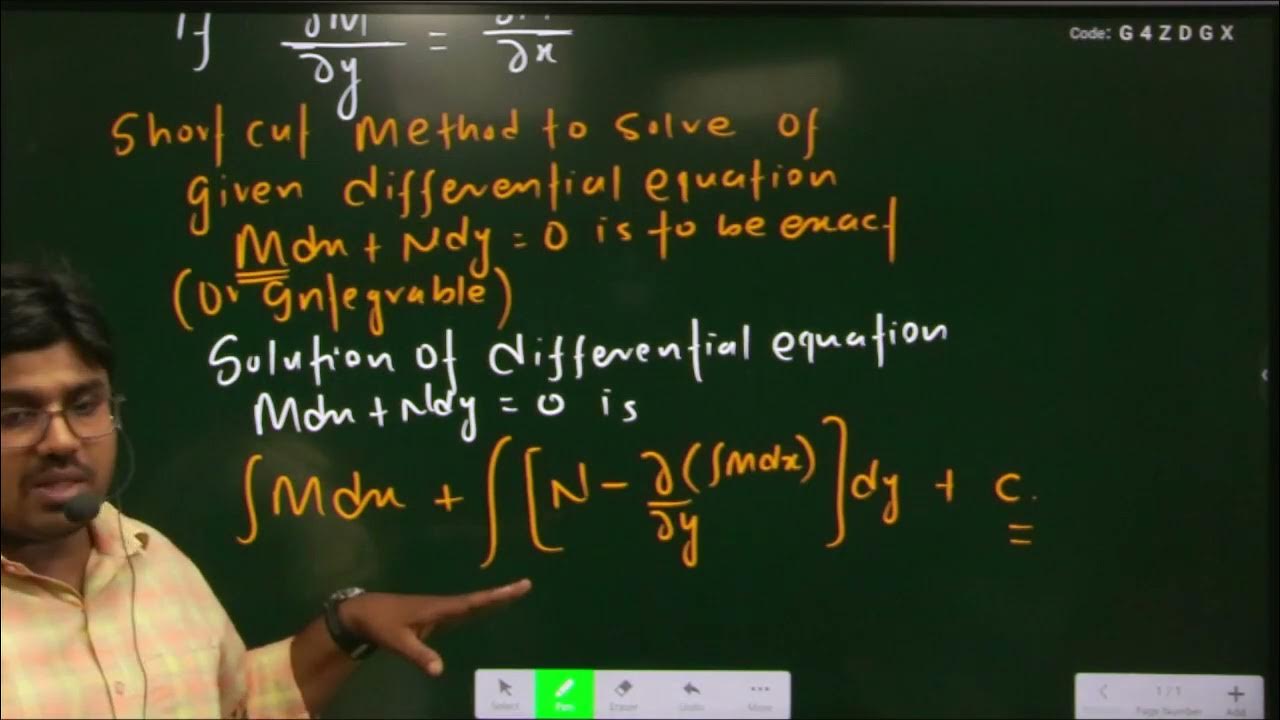 Code: G4ZDGX
If ∂M/∂y = ∂N/∂x
Short cut Method to solve of
given differential equation
Mdx + Ndy = 0 is to be exact
(Or Integrable)
Solution of differential equation
Mdx + Ndy = 0 is
∫Mdx + ∫[N - ∂/∂y (∫Mdx)]dy + c.
Select Pen Eraser Undo More
1/1
Page Number Add